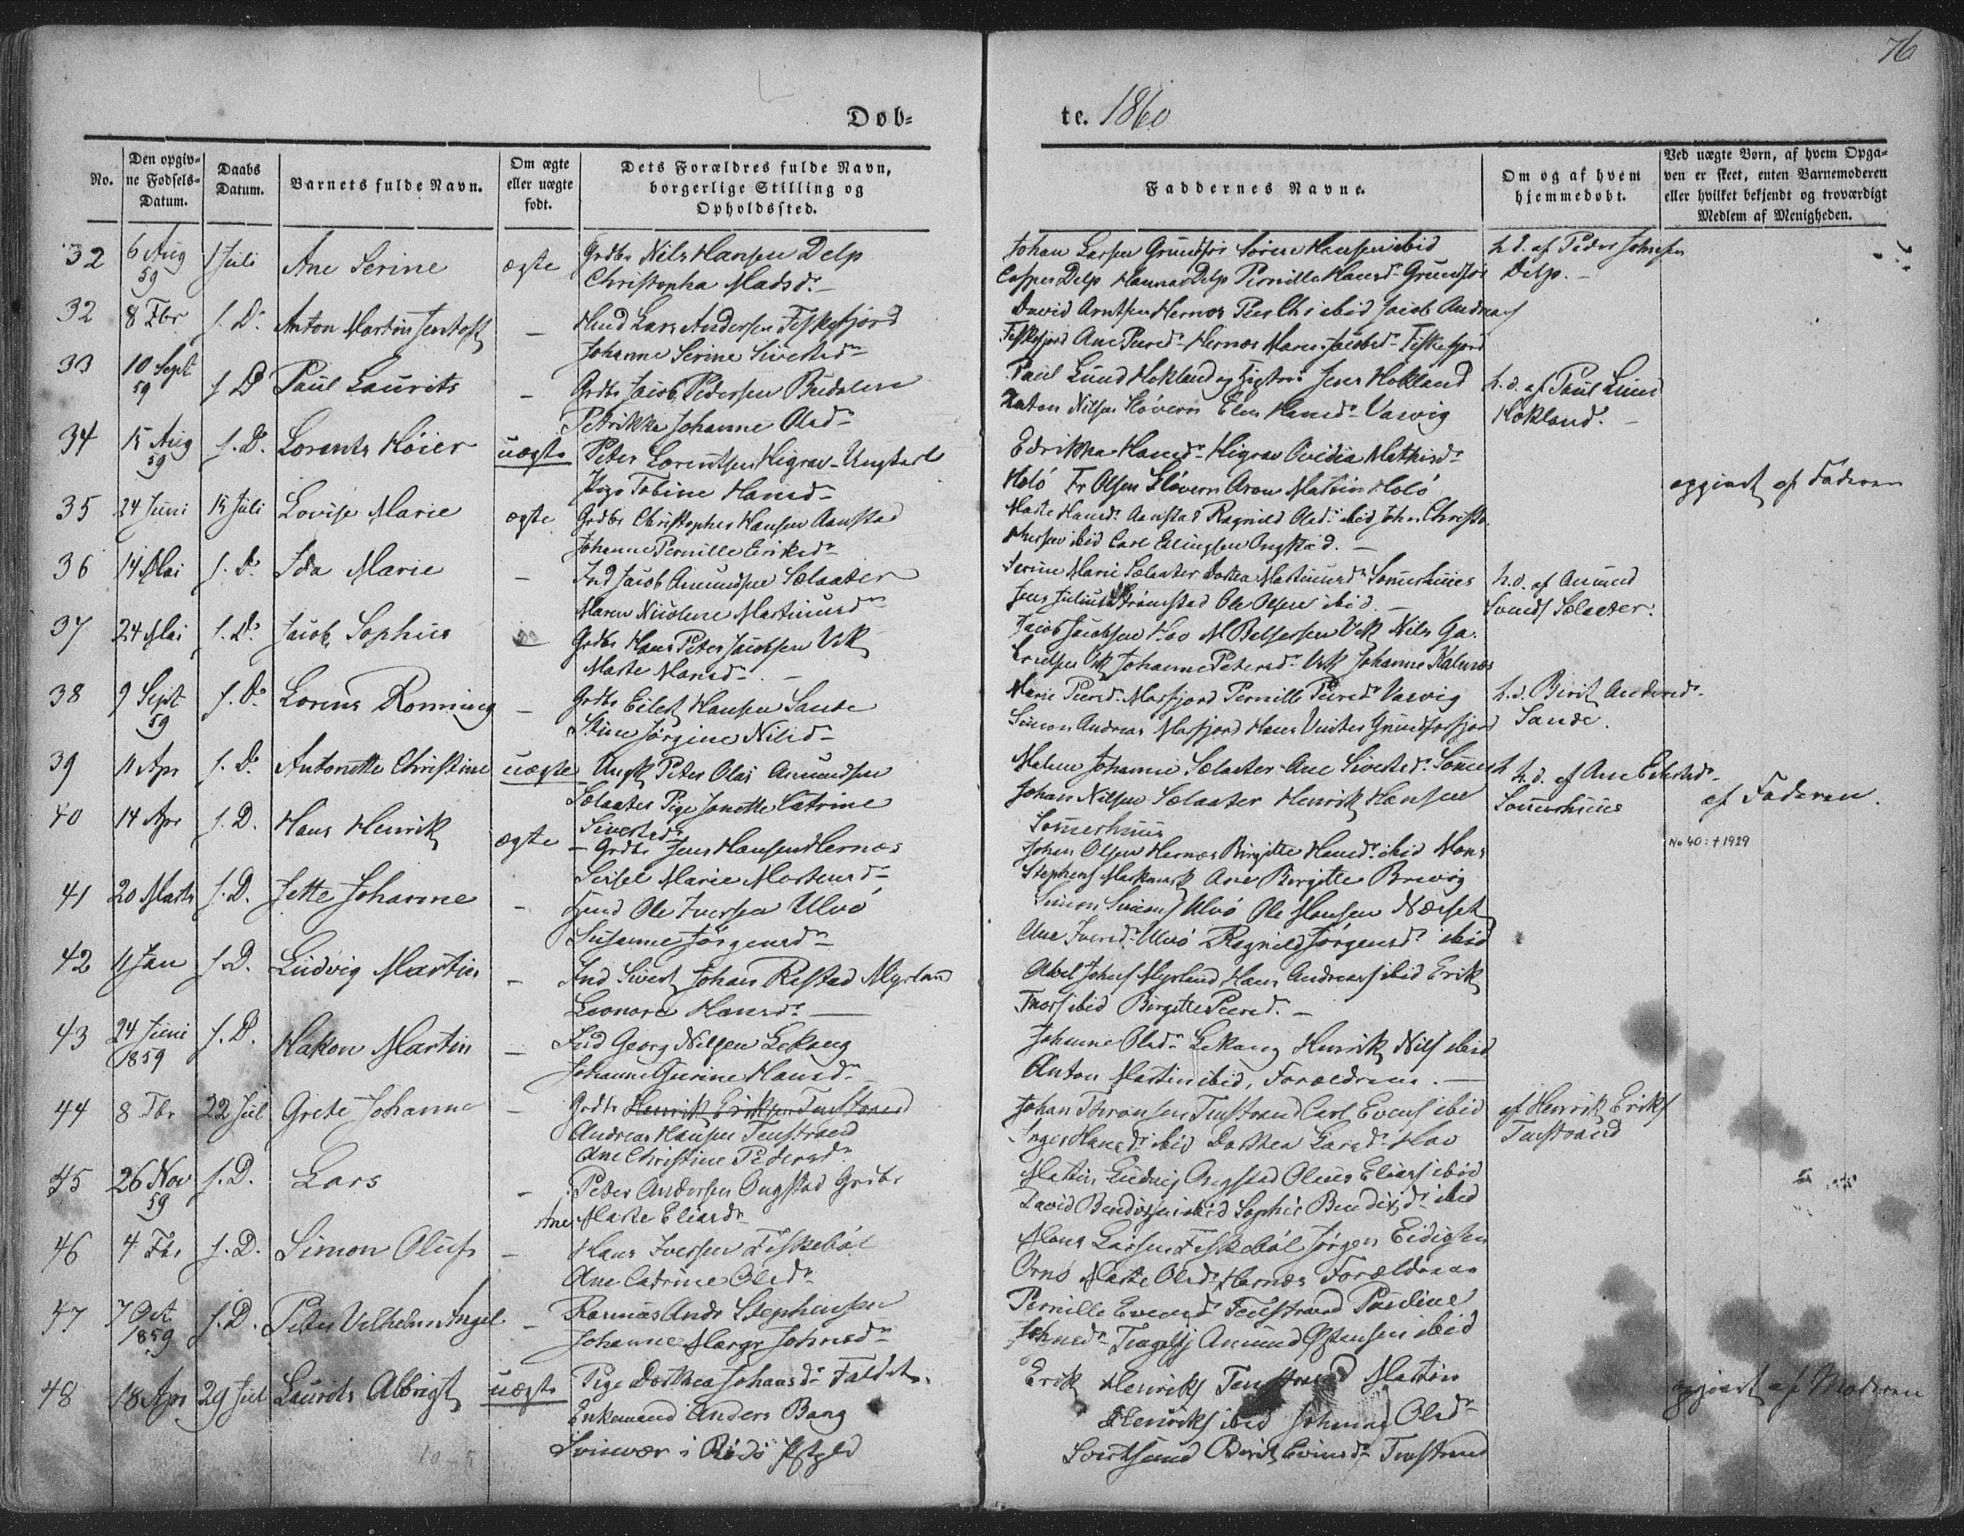 76
Døb-
te. 1860
No.
Den opgiv-
ne Fødsels-
Datum.
Daabs
Datum.
Barnets fulde Navn.
Om ægte
eller uægte
født.
Dets Forældres fulde Navn,
borgerlige Stilling og
Opholdssted.
Faddernes Navne.
Om og af hvem
hjemmedøbt.
Ved uægte Børn, af hvem Opga-
ven er skeet, enten Barnemoderen
eller hvilket bekjendt og troværdigt
Medlem af Menigheden.
32 6 Aug 59 1 Juli Ane Serine ægte Grdbr Nils Hansen Delp
Christopha Madsd.
Johan Larsen Grundfør Søren Hansen ibid
Casper Delp Hanna Delp Pernille Hansd. Grundfør
h.d. af Peder Johnsen
Delp.
32 8 Fbr s. D. Anton Martin Jentoft - Hmd Lars Andersen Fiskefjord
Johanne Serine Sivertsd.
David Arntsen Hernæs Peer Chr ibid Jacob Andreas
Fiskefjord Ane Peersd. Hernæs Maren Jacobsd. Fiskefjord
33 10 Sept 59 s. D. Paul Laurits - Grdbr Jacob Pedersen Budalen
Petrikka Johanne Olsd.
Paul Lund Hokland og Hustru Jens Hokland
Anton Nilsen Sløveren Elen Hansd. Vasvig
h.d. af Paul Lund
Hokland.
34 15 Aug 59 s. D. Lorents Høier uægte Peter Lorentsen Higrav Ungkarl
Pige Tobine Hansd.
Edrikka Hansd. Higrav Ovidia Mathisd.
Holø Fr Olsen Sløveren Aron Martin Holø
opgivet af Faderen
35 24 Juni 15 Juli Lovise Marie ægte Grdbr Christopher Hansen Aanstad
Johanne Pernille Eriksd.
Marte Hansd. Aanstad Ragnild Olsd. ibid John Christo
phersen ibid Carl Ellingsen Ongstad.
36 14 Mai s. D. Ida Marie - Ind Jacob Amundsen Sælaater
Maren Nicoline Martinusd.
Serine Marie Sælaater Dortea Martinusd. Sommerhuus
Jens Julius Strømstad Ole Olsen ibid.
h.d. af Amund
Svends Sælaater.
37 24 Mai s. D. Jacob Sophus - Grdbr Hans Peter Jacobsen Vik
Marte Hansd.
Jacob Jacobsen Hov M Baltersen Vik Nils Ga.
brielsen Vik Johanne Petersd. Vik Johanne Kalnæs
38 9 Sept 59 s. D. Lorens Ronning - Grdbr Eilert Hansen Sande
Stine Jørgine Nilsd.
Marie Peersd. Morfjord Pernille Peersd. Vasvig
Simon Andreas Morfjord Hans Winter Grundforfjord
h.d. Berit Andersd.
Sande.
39 11 Apr s. D. Antonette Christine uægte Ungk Peter Olai Amundsen
Sælaater Pige Janette Catrine
Sivertsd.
Malene Johanne Sælaater Ane Sivertsd. Sommerh
Johan Nilsen Sælaater Henrik Hansen
Sommerhuus
h.d. af Ane Eilertsd.
Sommerhuus
af Faderen.
40 14 Apr s. D. Hans Henrik ægte - Grdbr Jens Hansen Hernæs
Sirsel Marie Mortensd.
Johan Olsen Hernæs Birgitte Hansd. ibid Mons
Stephens Maskaursk Ane Birgitte Brevig
No 40: † 1929
41 20 Marts s. D. Jette Johanne - Hmd Ole Iversen Ulvø
Susanne Jørgensd.
Simon Simons Ulvø Ole Hansen Næsset
Ane Iversd. Ulvø Ragnild Jørgensd. ibid
42 11 Jan s. D. Ludvig Martin - Ind Sivert Johan Restad Myrland
Leonore Hansd.
Abel Johns Myrland Hans Andreas ibid Erik
Thors ibid Birgitte Peersd.
43 24 Juni 1859 s. D. Hakon Martin - Ind Georg Nilsen Lekang
Johanne Gurine Hansd.
Johanne Olsd. Lekang Henrik Nils ibid
Anton Martin ibid, Forældrene.
44 8 Fbr 22 Jul Grete Johanne - Grdbr Henrik Eriksen Tenstrand
Andreas Hansen Tenstrand
Ane Christine Pedersd.
Johan Thronsen Tenstrand Carl Evens ibid
Inger Hansd. ibid Dorthea Larsd. Hov
af Henrik Eriks
Tenstrand
45 26 Nov 59 s. D. Lars - Peter Andersen Ongstad Grdbr
Ane Marte Eliasd.
Martin Ludvig Ongstad Oluus Elias ibid
David Bendixsen ibid Sophie Bendixsd. ibid
46 4 Fbr s. D. Simon Oluf - Hans Iversen Fiskebøl
Ane Catrine Olsd.
Mons Larsen Fiskebøl Jørgen Eidisen
Ornø Marte Olsd. Hernæs Forældrene
47 7 Oct 1859 s. D. Peter Velhelm Angel - Rasmus Andr Stephensen
Johanne Margr Johnsd.
Pernille Evensd. Tenstrand Pauline
Johnsd. Tengelfj Amund Østensen ibid
48 18 Apr 29 Jul Laurits Albrigt uægte Pige Dorthea Johansd. Faldet.
Enkemand Anders Bang
Svinvær i Rødø Pstgld
Erik Henriks Tenstrand Martin
Henriks ibid Johanne Olsd.
Svartsund Berit Evensd. Tenstrand
opgivet af Moderen